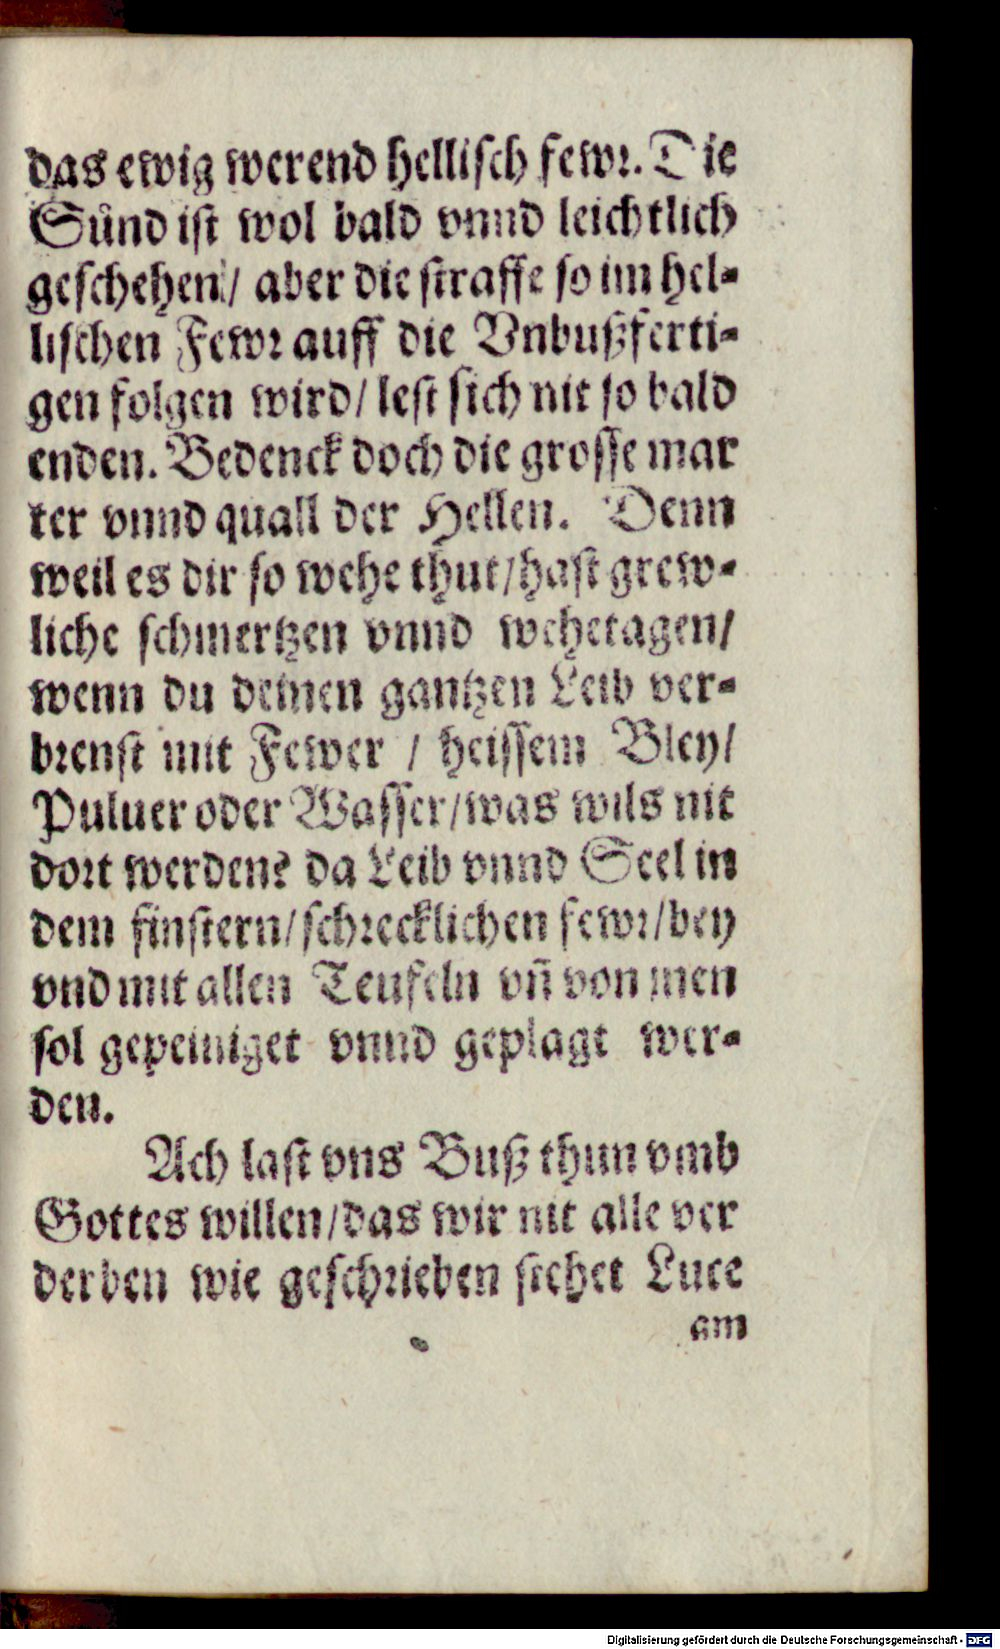 das ewig werend hellisch fewr. Die
Sünd ist wol bald vnnd leichtlich
geschehen/ aber die straffe so im hel-
lischen Fewr auff die Vnbußferti-
gen folgen wird/ lest sich nit so bald
enden. Bedenck doch die grosse mar
ter vnnd quall der Hellen. Denn
weil es dir so wehe thut/hast grew-
liche schmertzen vnnd wehetagen/
wenn du deinen gantzen Leib ver-
brenst mit Fewer / heissem Bley/
Puluer oder Wasser/was wils nit
dort werden? da Leib vnnd Seel in
dem finstern/schrecklichen fewr/bey
vnd mit allen Teufeln vñ von jnen
sol gepeiniget vnnd geplagt wer-
den.
Ach last vns Buß thun vmb
Gottes willen/das wir nit alle ver
derben wie geschrieben stehet Luce
am
Digitalisierung gefördert durch die Deutsche Forschungsgemeinschaft - DFG